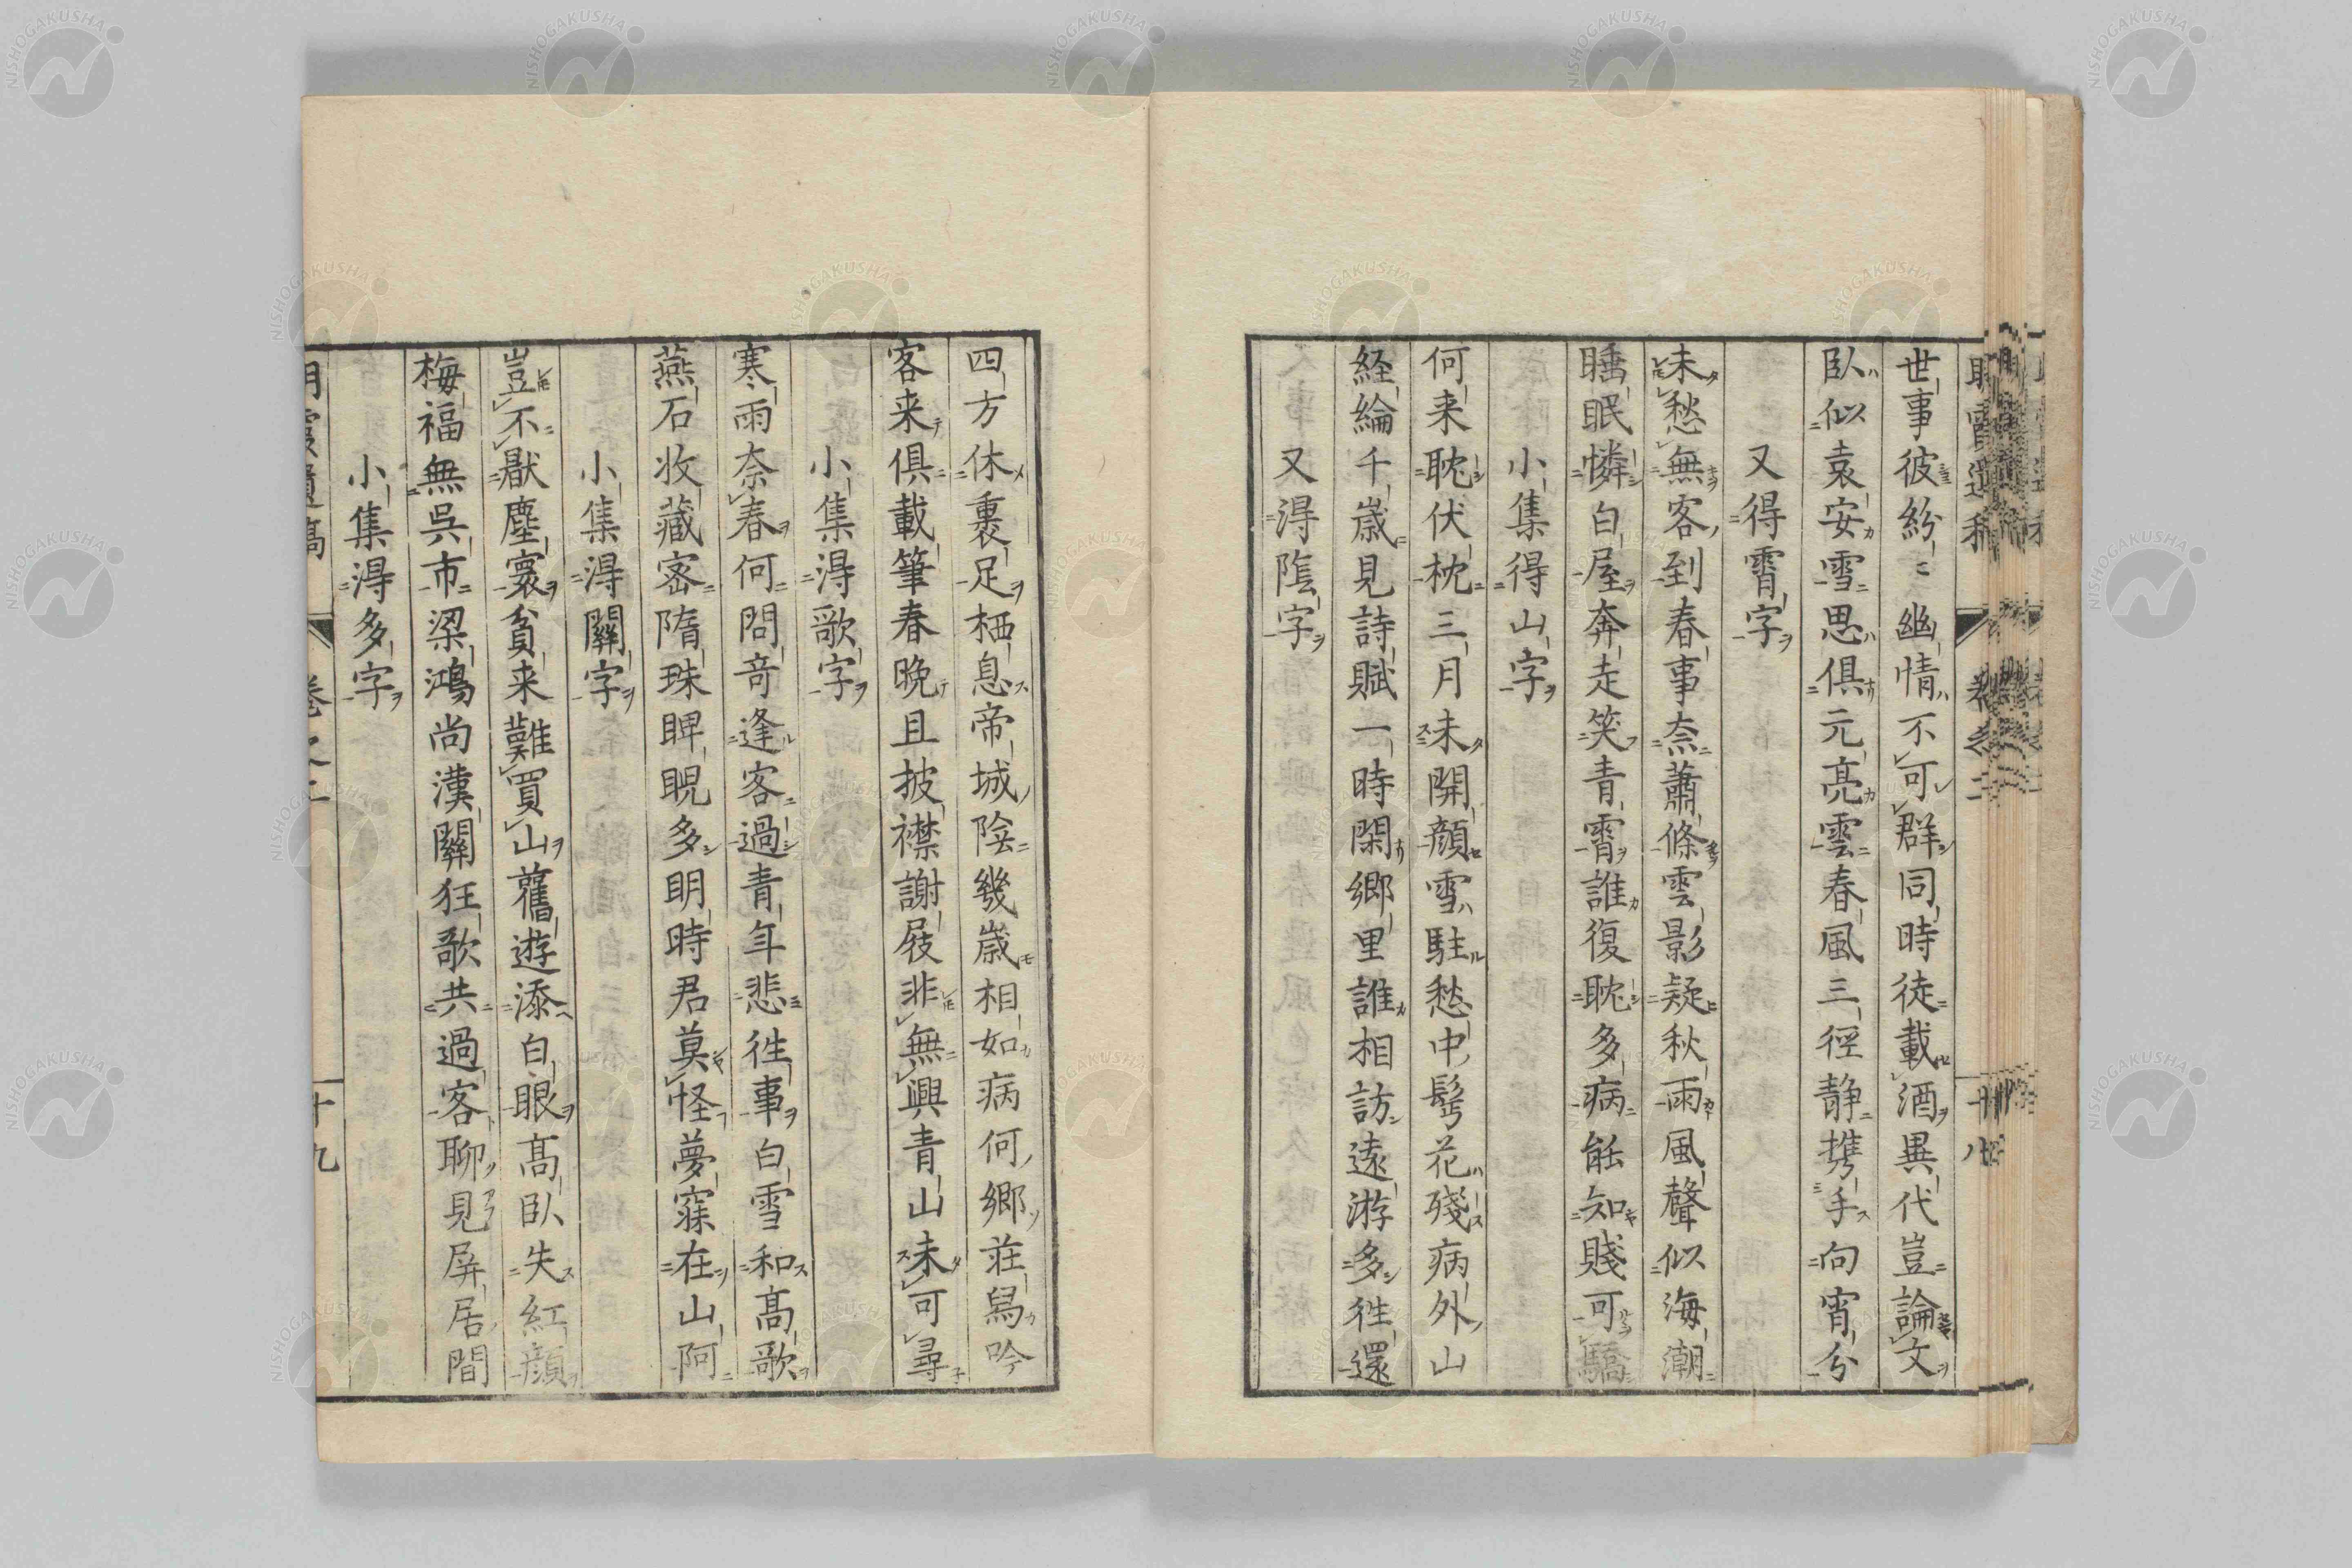 世事彼紛〻幽情不可群同時徒載酒異代豈論文
臥似袁安雪思俱元亮雲春風三徑静携手向宵分
又得霄字
未愁無客到春事奈蕭條雲影疑秋雨風聲似海潮
睡眠憐白屋奔走笑青霄誰復耽多病能知賤可驕
小集得山字
何来耽伏枕三月未開顔雪駐愁中髩花殘病外山
経綸千嵗見詩賦一時閑郷里誰相訪遠游多徃還
又淂隂字
四方休裹足栖息帝城陰幾嵗相如病何郷荘舄吟
客来俱載筆春晩且披襟謝屐非無興青山未可尋
小集淂歌字
寒雨奈春何問竒逢客過青年悲徃事白雪和髙歌
燕石收藏宻隋珠睥睨多明時君莫怪夢寐在山阿
小集淂關字
豈不厭塵寰貧来難買山舊遊添白眼髙臥失紅顔
梅福無呉市梁鴻尚漢關狂歌共過客聊見屏居間
小集淂多字
卷之二
十九
NISHOGAKUSHA